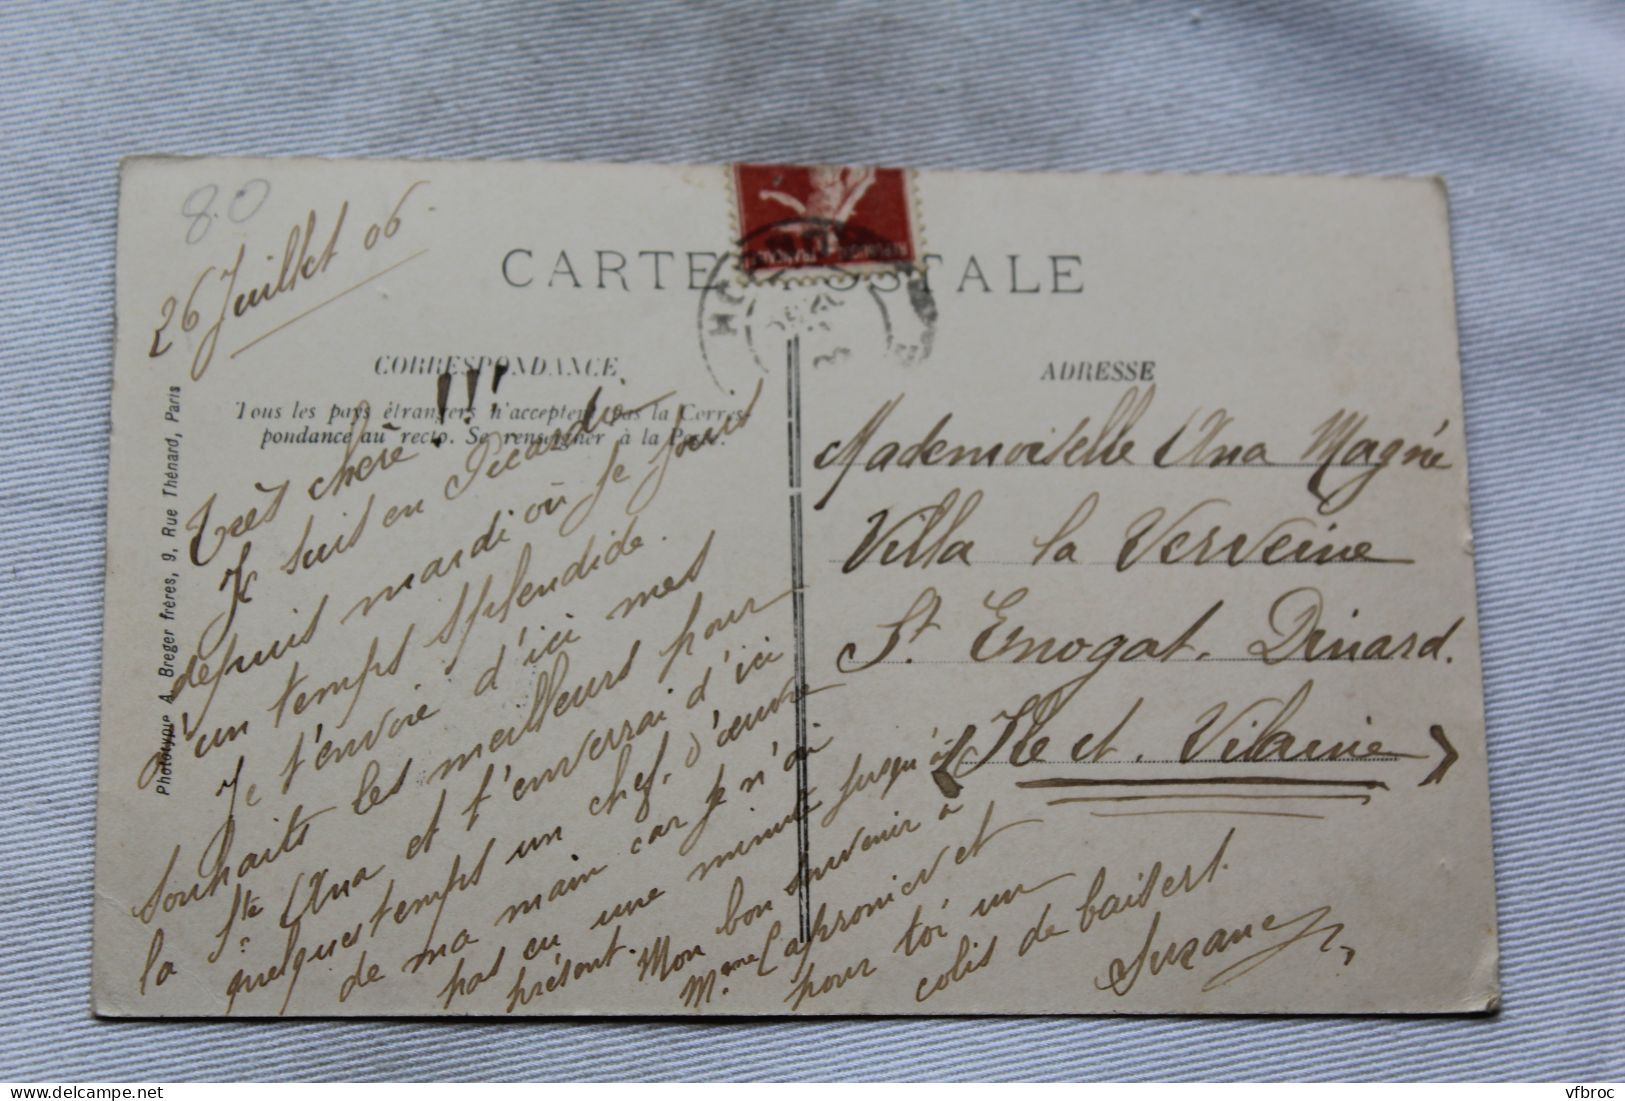 80
26 Juillet 06.
CARTE POSTALE
CORRESPONDANCE
Tous les pays étrangers n'acceptent pas la Corres-
pondance au recto. Se renseigner à la Poste.
ADRESSE
Phototypie A. Breger frères, 9, Rue Thénard, Paris
Très chère !!!
Je suis en Picardie
depuis mardi où je jouit
d'un temps splendide.
Je t'envoie d'ici mes
souhaits les meilleurs pour
la Ste Ana et t'enverrai d'ici
quelques temps un chef. d'œuvre
de ma main car je n'ai
pas eu une minute jusqu'à
présent. Mon bon souvenir à
Mme et
pour toi un
colis de baisers.
Suzane
Mademoiselle Ana Magné
Villa la Verveine
St Enogat. Dinard.
(Ile et. Vilaine)
vfbroc